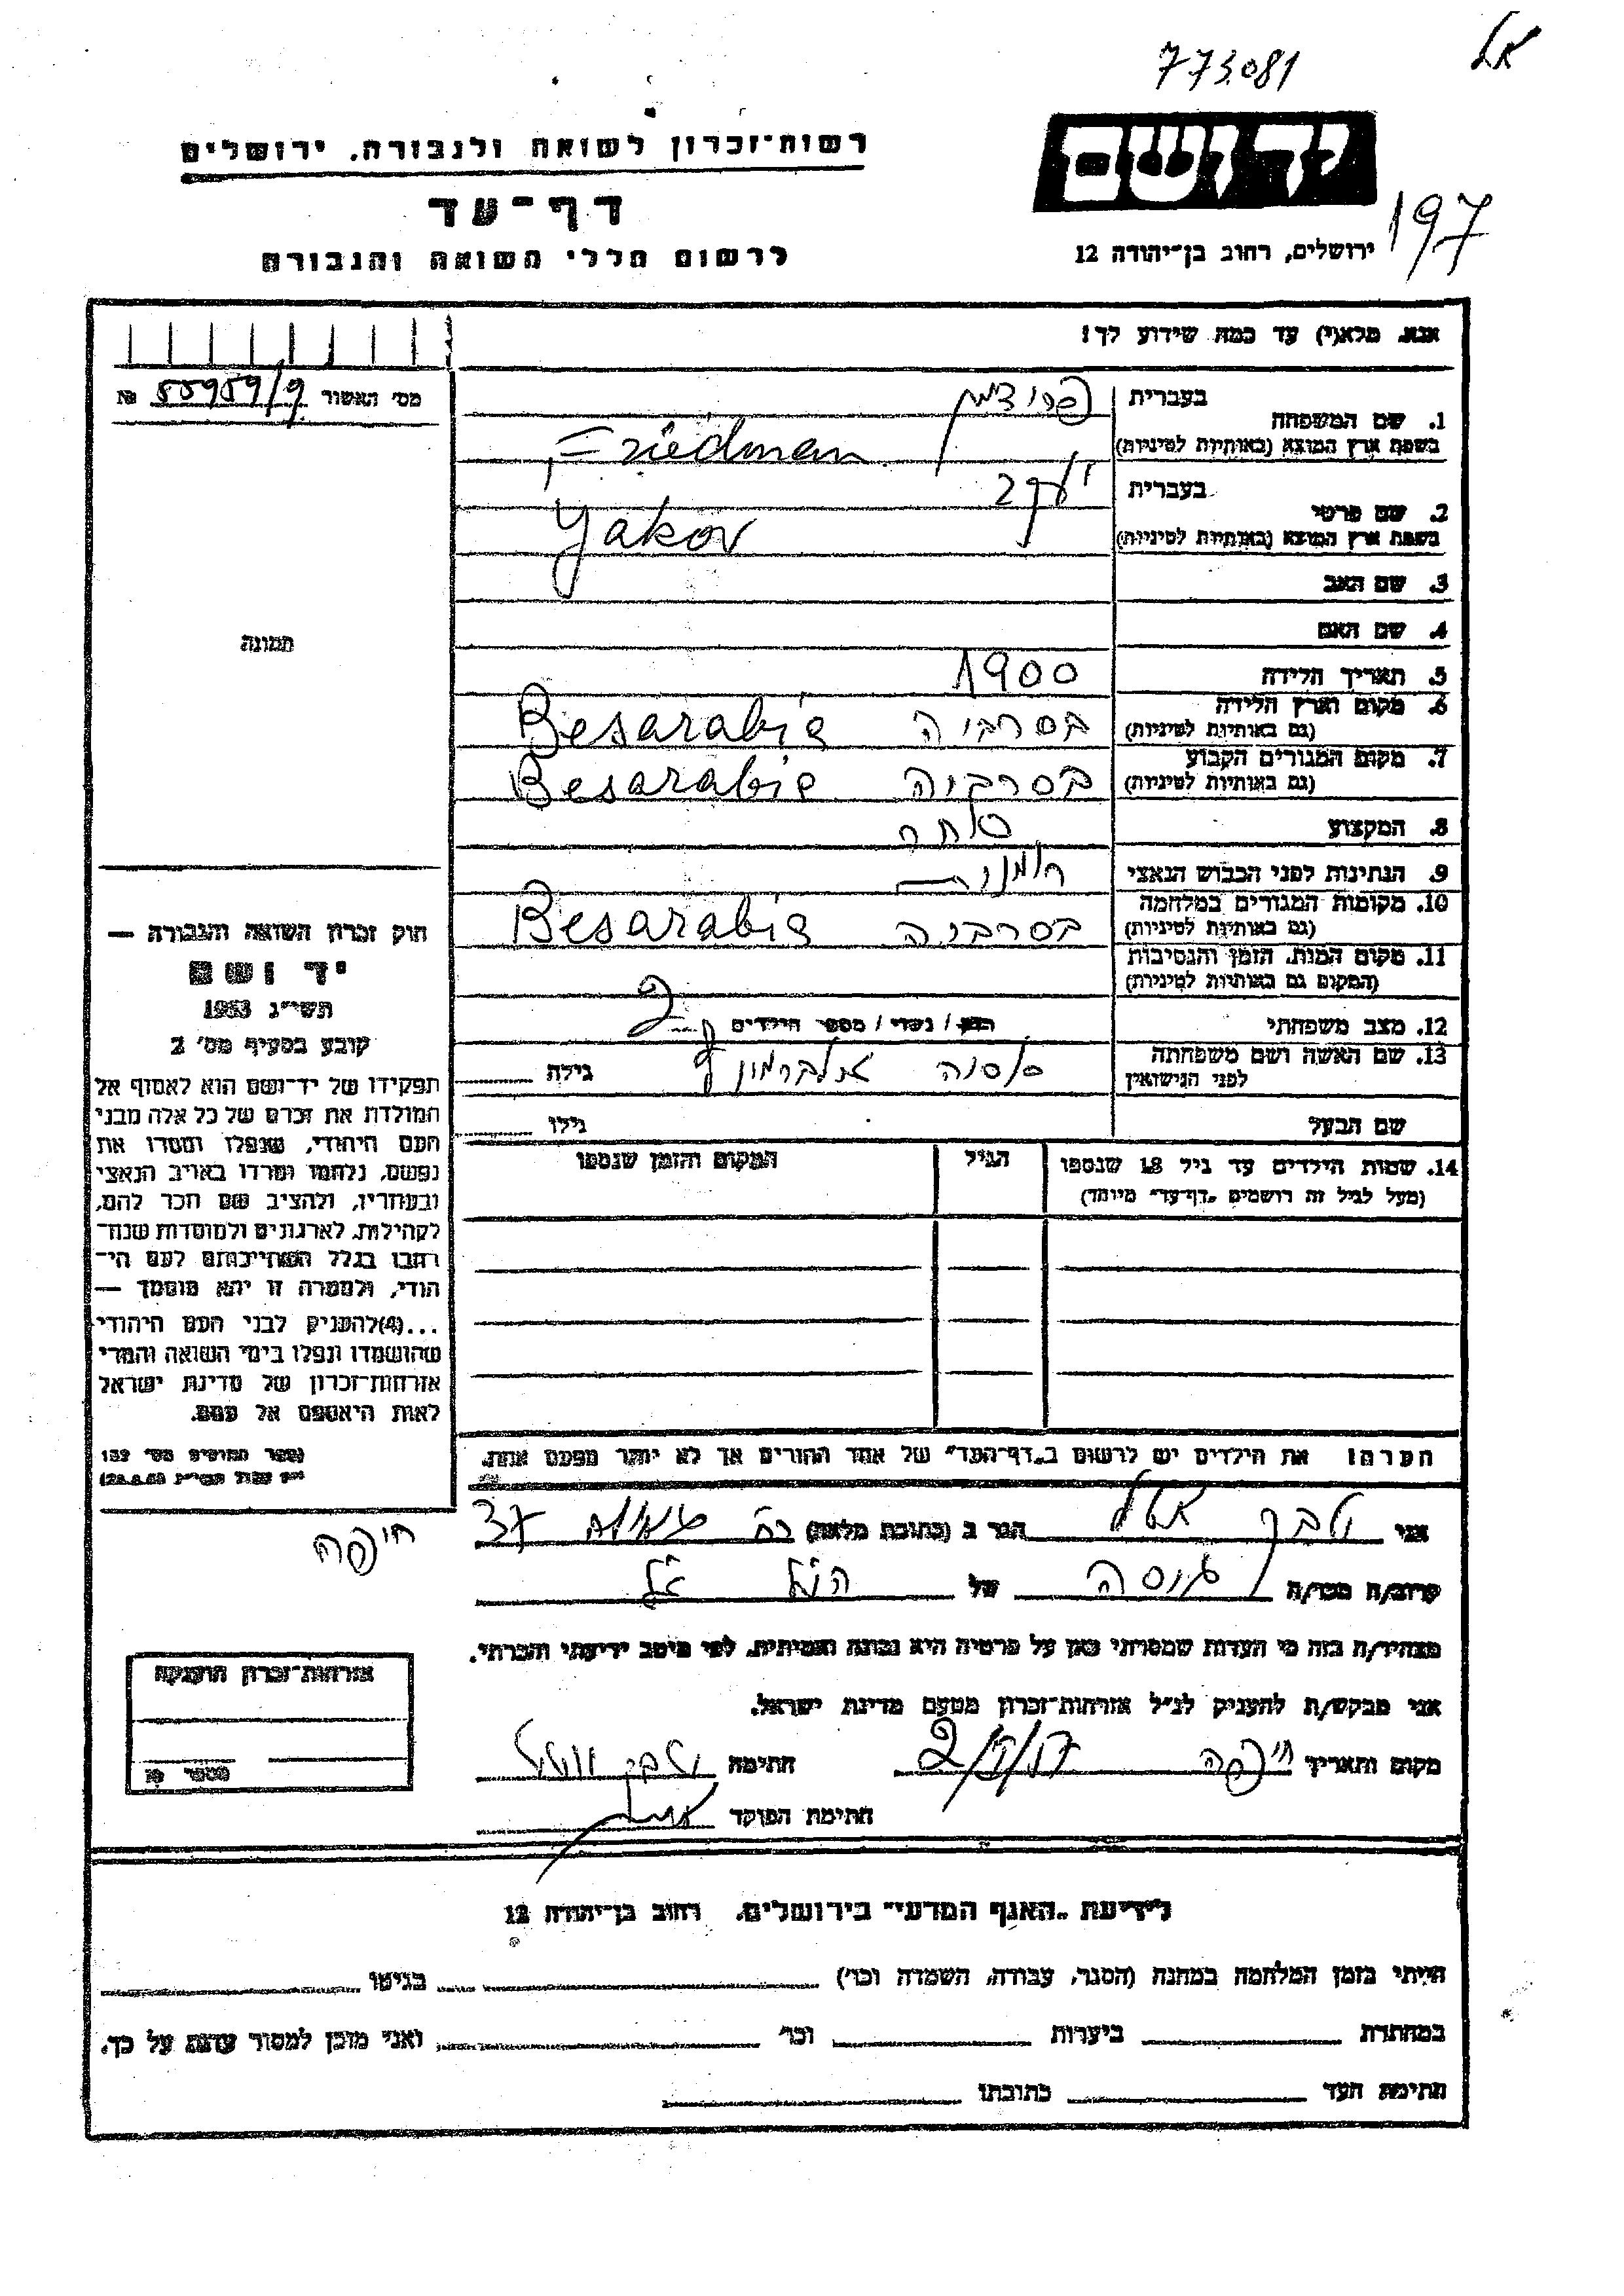 773081
אל
רשות-זכרון לשואה ולגבורה, ירושלים
יד ושם
דף-עד
197
לרשום חללי השואה והגבורה
ירושלים, רחוב בן-יהודה 12
אנא, מלא(י) עד כמה שידוע לך!
מס' האשור 55959/9 №
בעברית פרידמן
1. שם המשפחה
בשפת ארץ המוצא (באותיות לטיניות) Friedman
בעברית יעקב
2. שם פרטי
בשפת ארץ המוצא (באותיות לטיניות) Yakov
3. שם האב
4. שם האם
תמונה
5. תאריך הלידה 1900
6. מקום וארץ הלידה
(גם באותיות לטיניות) בסרביה Besarabia
7. מקום המגורים הקבוע
(גם באותיות לטיניות) בסרביה Besarabia
8. המקצוע סוחר
9. הנתינות לפני הכבוש הנאצי רומנית
10. מקומות המגורים במלחמה
(גם באותיות לטיניות) בסרביה Besarabia
11. מקום המות, הזמן והנסיבות
(המקום גם באותיות לטיניות)
12. מצב משפחתי רווק / נשוי / מספר הילדים
13. שם האשה ושם משפחתה
לפני הנישואין גילה
שם הבעל גילו
14. שמות הילדים עד גיל 18 שנספו הגיל המקום והזמן שנספו
(מעל לגיל זה רושמים "דף-עד" מיוחד)
חוק זכרון השואה והגבורה —
יד ושם
תשי"ג 1953
קובע בסעיף מס' 2
תפקידו של יד-ושם הוא לאסוף אל
המולדת את זכרם של כל אלה מבני
העם היהודי, שנפלו ומסרו את
נפשם, נלחמו ומרדו באויב הנאצי
ובעוזריו, ולהציב שם וזכר להם,
לקהילות, לארגונים ולמוסדות שנח-
רבו בגלל השתייכותם לעם הי-
הודי, ולמטרה זו יהא מוסמך —
...(4) להעניק לבני העם היהודי
שהושמדו ונפלו בימי השואה והמרי
אזרחות-זכרון של מדינת ישראל
לאות היאספם אל עמם.
הערה: את הילדים יש לרשום ב"דף-העד" של אחד ההורים אך לא יותר מפעם אחת.
אני הגר ב (כתובת מלאה)
חיפה
קרוב/ה מכר/ה גיסה של הנ"ל
מצהיר/ה בזה כי העדות שמסרתי כאן על פרטיה היא נכונה ואמיתית, לפי מיטב ידיעתי והכרתי.
אני מבקש/ת להעניק לנ"ל אזרחות-זכרון מטעם מדינת ישראל.
מקום ותאריך חיפה חתימה
חתימת הפוקד
אזרחות-זכרון הוענקה
מספר №
לידיעת "האגף המדעי" בירושלים, רחוב בן-יהודה 12
הייתי בזמן המלחמה במחנה (הסגר, עבודה, השמדה וכו') בגיטו
במחתרת ביערות וכו' ואני מוכן למסור עדות על כך.
חתימת העד כתובתו